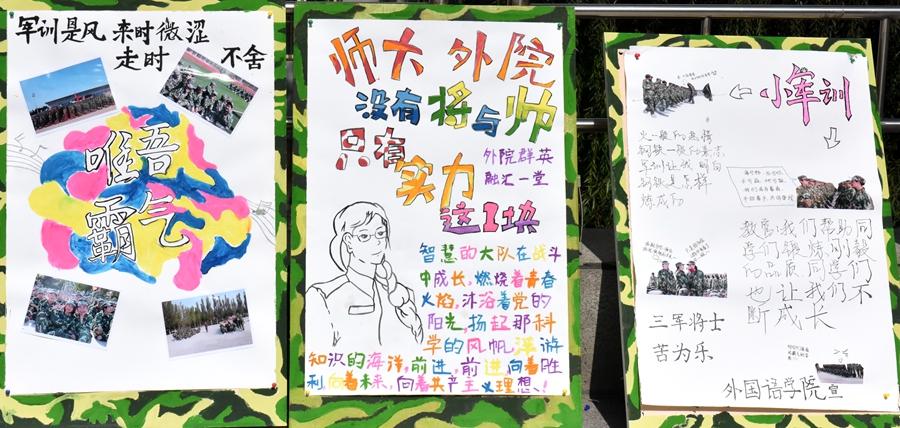 军训是风 来时微涩
走时 不舍
唯吾
霸气
师大 外院
没有将与帅
只有
实力
外院群英
融汇一堂
这1块
智慧的大队在战斗
中成长,燃烧着青春
火焰,沐浴着党的
阳光,扬起那科
学的风帆,浮游
知识的海洋,前进,前进,向着胜
利,向着未来,向着共产主义理想!
小军训
火一般的热情
钢铁一般的意志
军训让我明白
钢铁是怎样
炼成的
教官:我们帮助同
学们锻炼刚毅
的品质,同学们
也让我们不
断成长
三军将士
苦为乐
外国语学院 宣